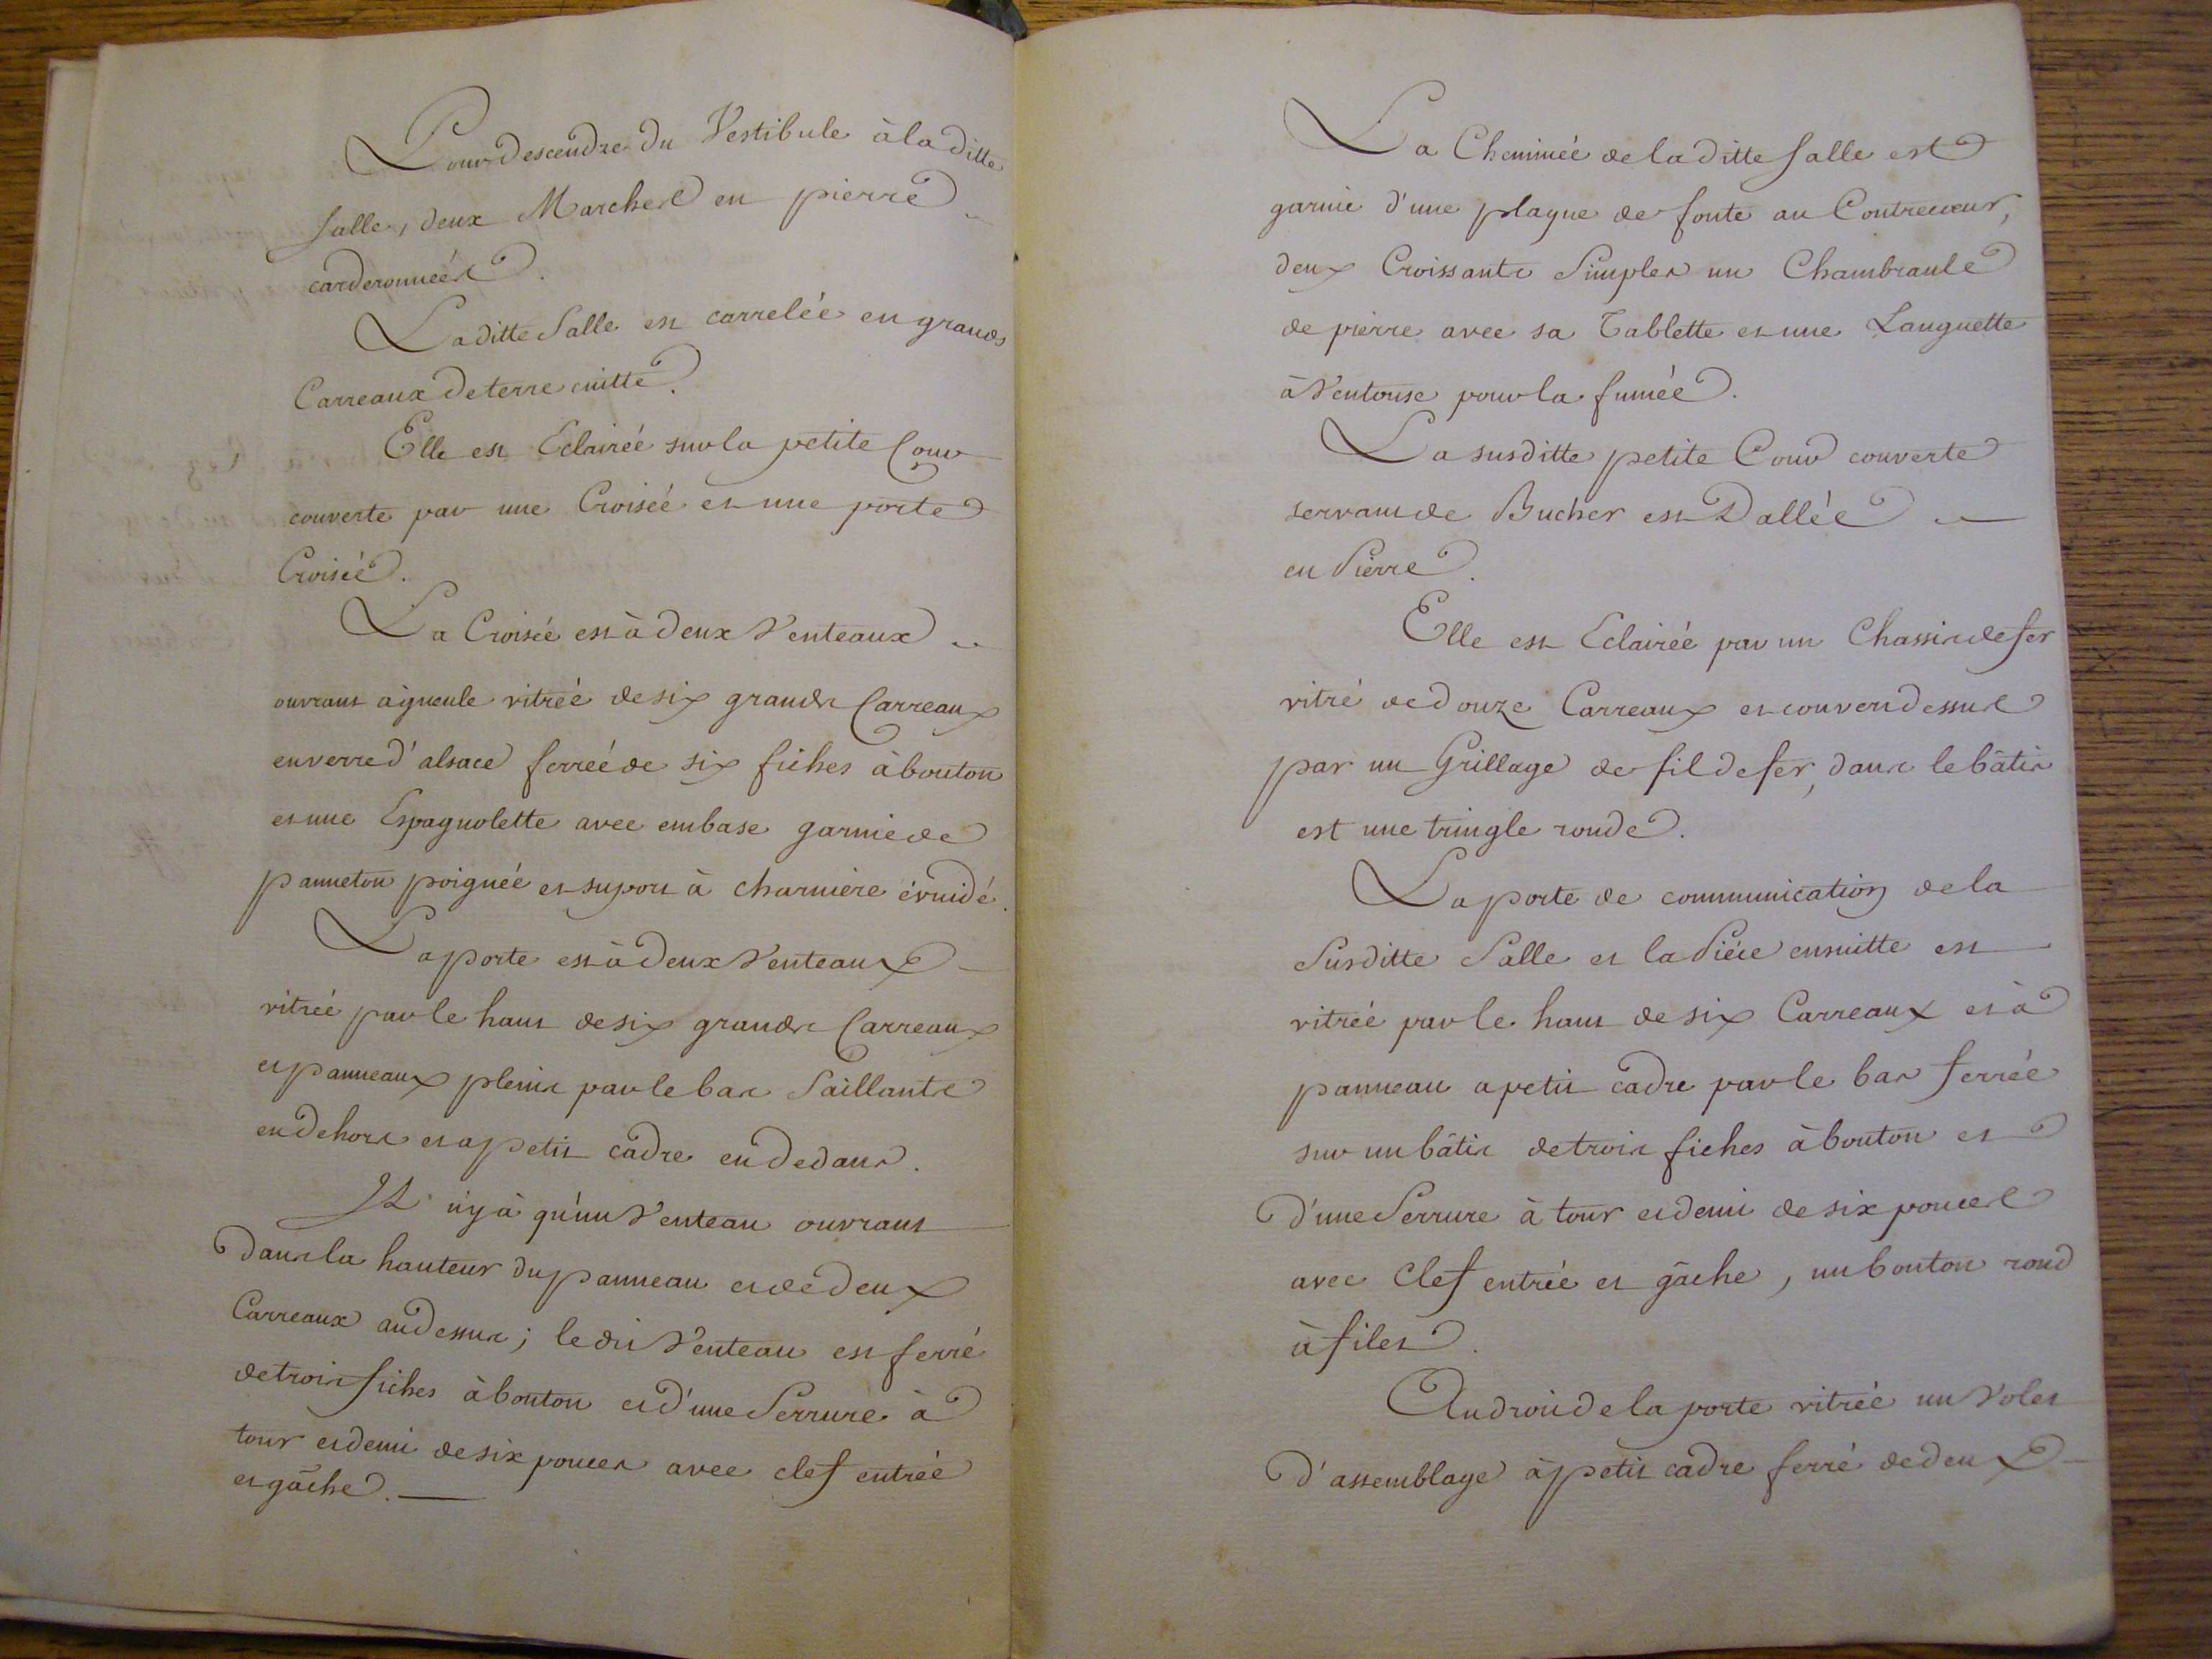 Pour descendre du Vestibule à la ditte
Salle, deux Marches en pierre
carderonnées.
La ditte Salle est carrelée en grands
Carreaux de terre cuitte.
Elle est Eclairée sur la petite Cour
couverte par une Croisée et une porte
Croisée.
La Croisée est à deux Venteaux
ouvrant à gueule vitrée de six grands Carreaux
en verre d'alsace ferrée de six fiches à bouton
et une Espagnolette avec embase garnie de
panneton poignée et suport à charnière évuidé.
La porte est à deux Venteaux
vitrée par le haut de six grands Carreaux
et panneaux pleins par le bas Saillants
en dehors et a petit cadre en dedans.
Il n'y à qu'un Venteau ouvrant
dans la hauteur du panneau et de deux
Carreaux au dessus ; le dit Venteau est ferré
de trois fiches à bouton et d'une Serrure à
tour et demi de six pouces avec clef entrée
et gâche.
La Cheminée de la ditte Salle est
garnie d'une plaque de fonte au Contrecœur,
deux Croissants Simples un Chambranle
de pierre avec sa Tablette et une Languette
à Ventouse pour la fumée.
La susditte petite Cour couverte
servant de Bucher est Dallée
en Pierre.
Elle est Eclairée par un Chassis de fer
vitré de douze Carreaux et couvert dessus
par un Grillage de fil de fer, dans le bâtis
est une tringle ronde.
La porte de communication de la
Susditte Salle et la Piéce ensuitte est
vitrée par le haut de six Carreaux et à
panneau a petit cadre par le bas ferrée
sur un bâtis de trois fiches à bouton et
d'une Serrure à tour et demi de six pouces
avec Clef entrée et gâche, un bouton rond
à filet.
Au droit de la porte vitrée un Volet
d'assemblage à petit cadre ferré de deux